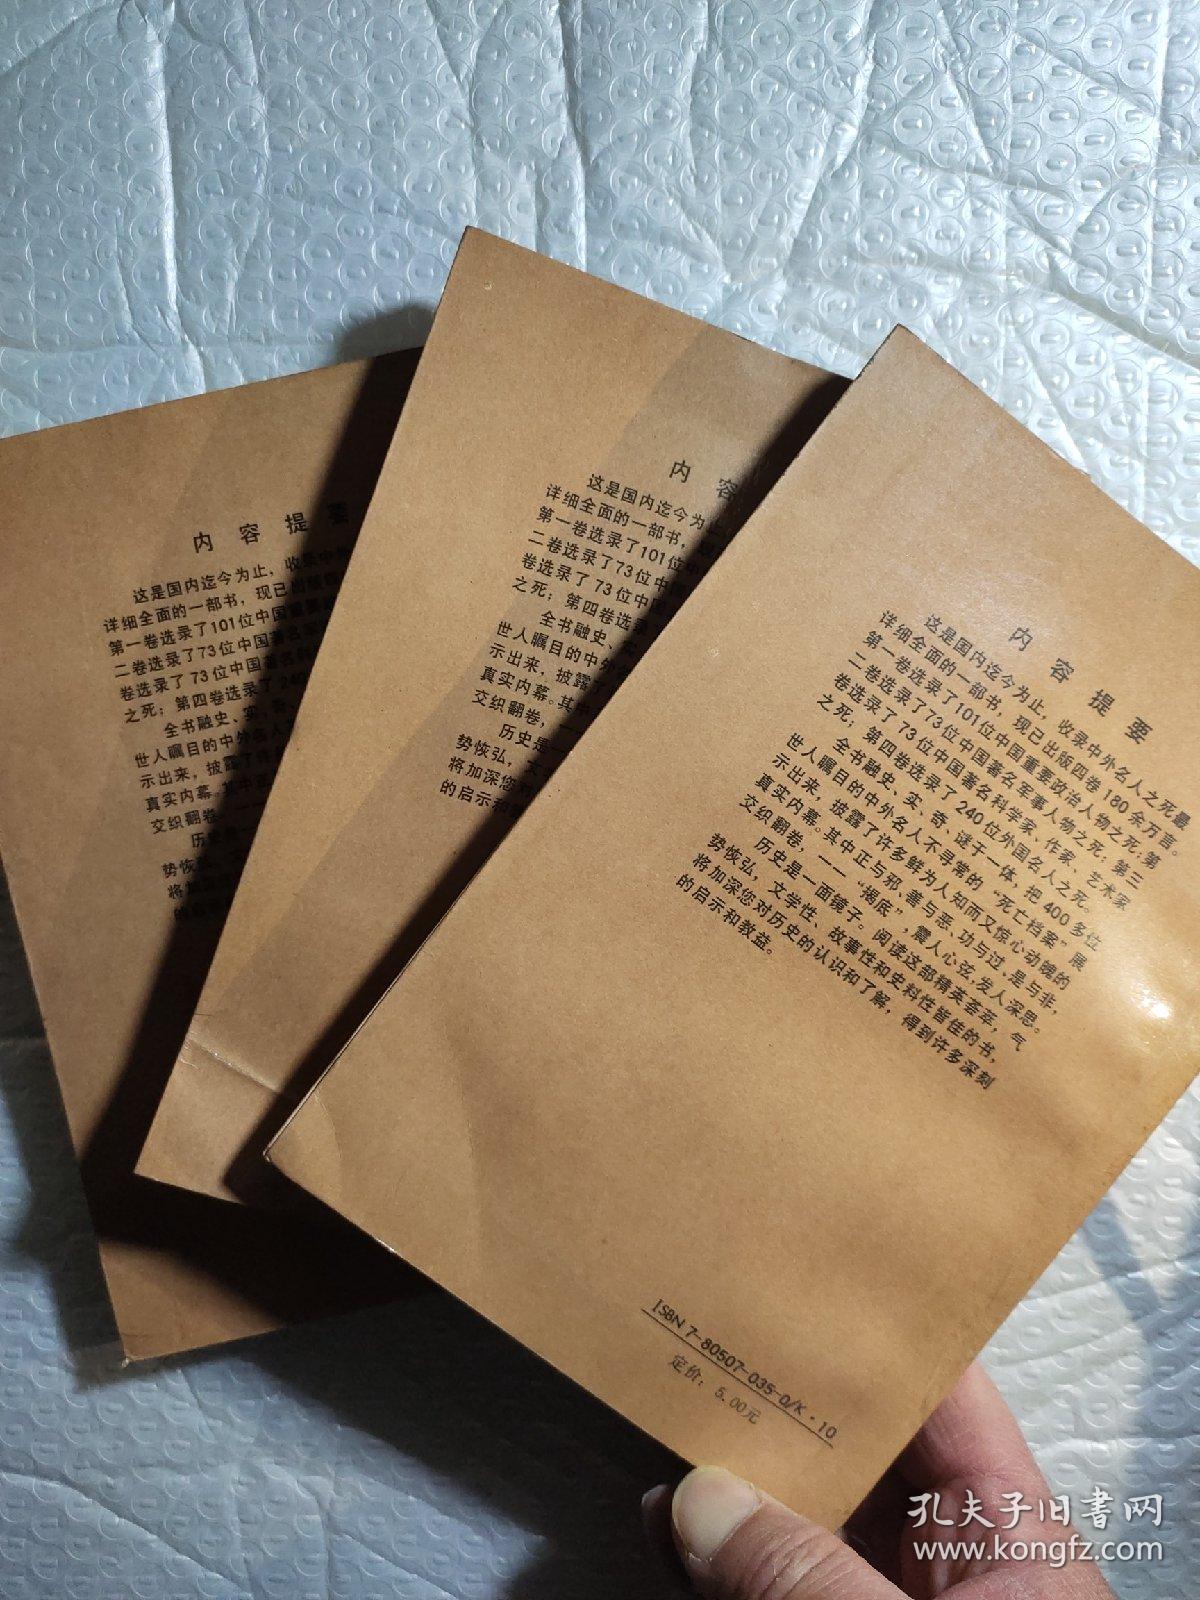 内容提要
这是国内迄今为止，收录中
详细全面的一部书，现已出版
第一卷选录了101位中国重要
二卷选录了73位中国著名军
卷选录了73位中国著名科
之死；第四卷选录了240
全书融史、实、奇、
世人瞩目的中外名人
示出来，披露了许多
真实内幕。其中正
交织翻卷，一
历史是一
势恢弘，文
将加深您
的启示
内容
这是国内迄今为止
详细全面的一部书，现
第一卷选录了101位中
二卷选录了73位中
卷选录了73位中国
之死；第四卷选录
全书融史、实
世人瞩目的中外
示出来，披露了
真实内幕。其中
交织翻卷，一
历史是一
势恢弘，文
将加深您对
的启示和
内容提要
这是国内迄今为止，收录中外名人之死最
详细全面的一部书，现已出版四卷180余万言。
第一卷选录了101位中国重要政治人物之死；第
二卷选录了73位中国著名军事人物之死；第三
卷选录了73位中国著名科学家、作家、艺术家
之死；第四卷选录了240位外国名人之死。
全书融史、实、奇、谜于一体，把400多位
世人瞩目的中外名人不寻常的“死亡档案”展
示出来，披露了许多鲜为人知而又惊心动魄的
真实内幕。其中正与邪、善与恶、功与过、是与非，
交织翻卷，一一“揭底”，震人心弦，发人深思。
历史是一面镜子。阅读这部精英荟萃，气
势恢弘，文学性、故事性和史料性皆佳的书，
将加深您对历史的认识和了解，得到许多深刻
的启示和教益。
ISBN 7-80507-035-0/K·10
定价：5.00元
孔夫子旧书网
www.kongfz.com